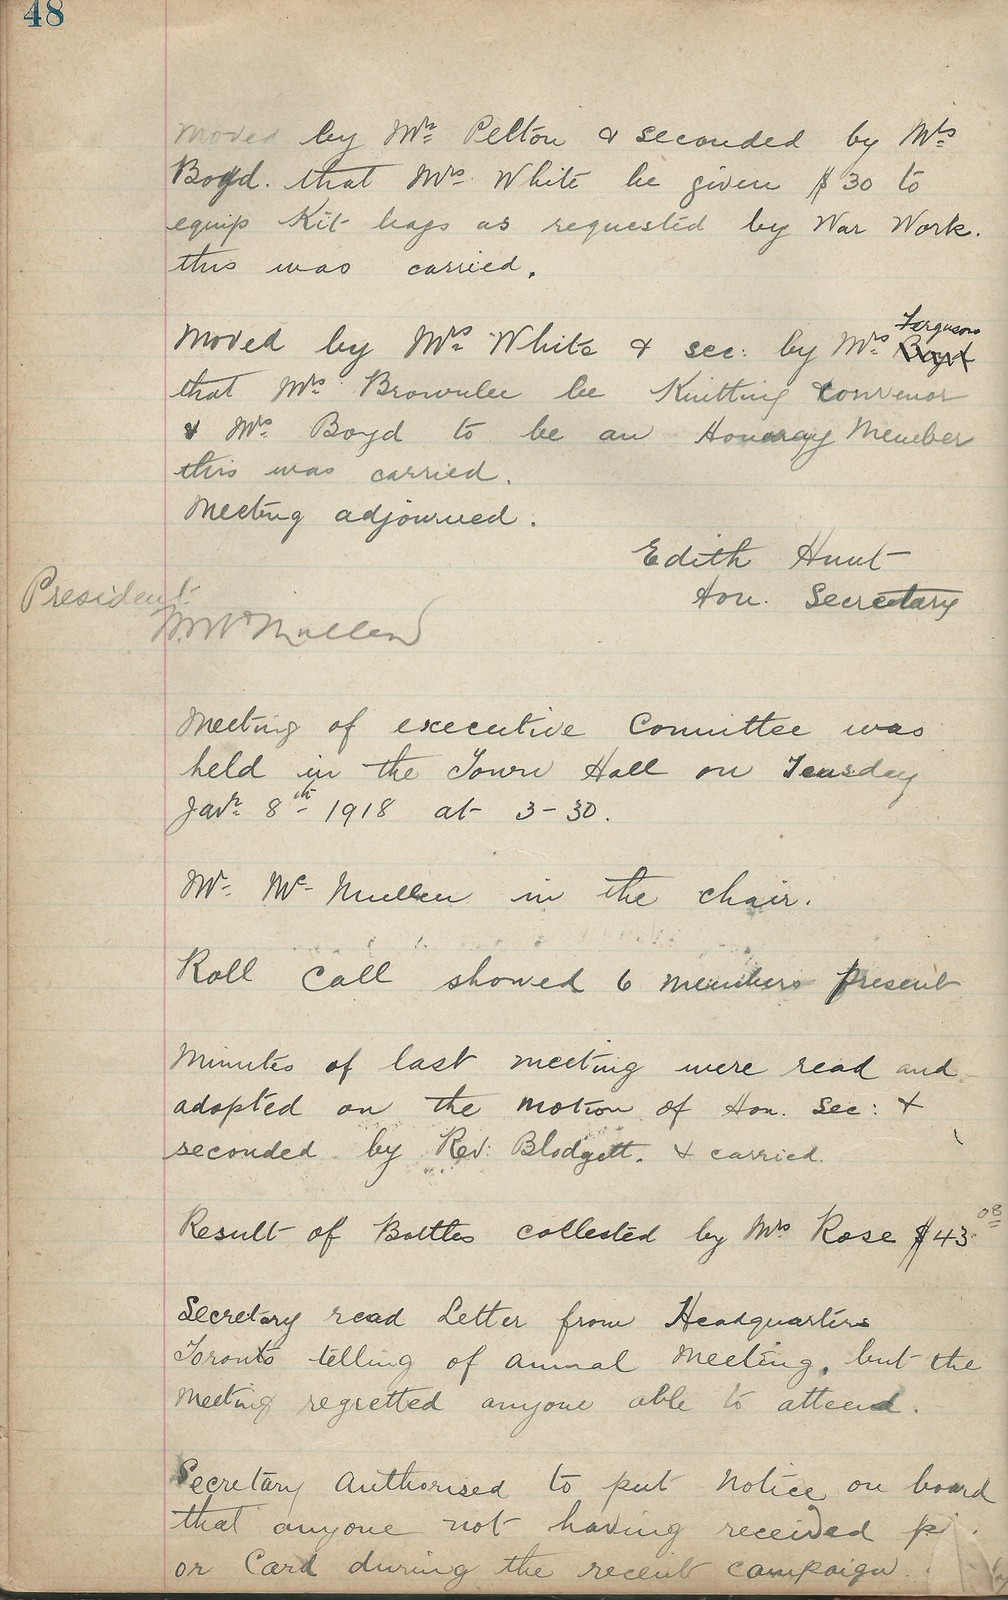 48
Moved by Mrs Pelton & seconded by Mrs
Boyd. that Mrs. White be given $30 to
equip Kit bags as requested by War Work.
this was carried.
Moved by Mrs White & sec: by Mrs Ferguson
that Mrs Brownlee be Knitting Convenor
& Mrs. Boyd to be an Honoray Member
this was carried.
Meeting adjourned.
Edith Hunt
Hon. Secretary
President
McMullen
Meeting of executive Committee was
held in the Town Hall on Teusday
Janr. 8th 1918 at 3-30.
Mr. Mc Mullen in the chair.
Roll Call showed 6 members present
Minutes of last meeting were read and
adopted on the motion of Hon. Sec: &
seconded by Rev: Blodgett. & carried.
Result of Bottles collected by Mrs Rose $43.08
Secretary read Letter from Headquarters
Toronto telling of annual Meeting, but the
Meeting regretted anyone able to attend.
Secretary Authorised to put Notice on board
that anyone not having received
or Card during the recent campaign